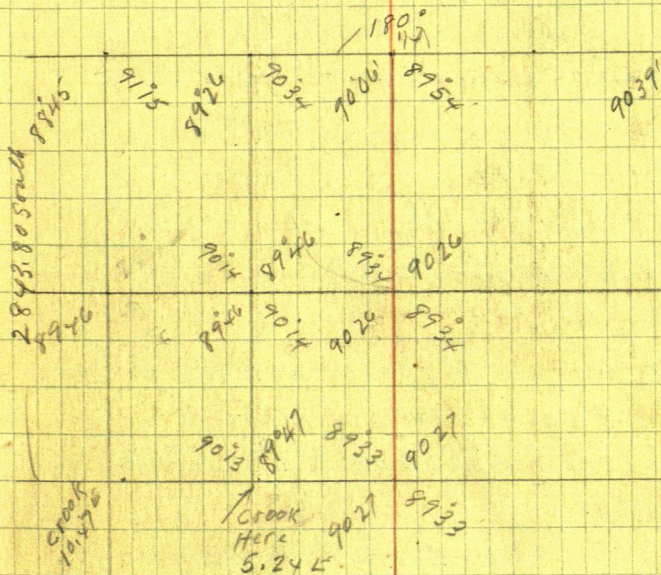 180°
88°45
91°15
89°26
90°34
90°06'
89°54
90°39'
2843.80 South
90°14
89°46
89°34
90°26
89°46
89°46
90°14
90°26
89°34
90°13
89°47
89°33
90°27
Crook
10.47
Crook
Here
5.24
90°27
89°33